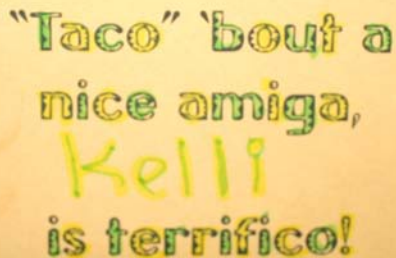 "Taco" 'bout a
nice amiga,
Kelli
is terrifico!